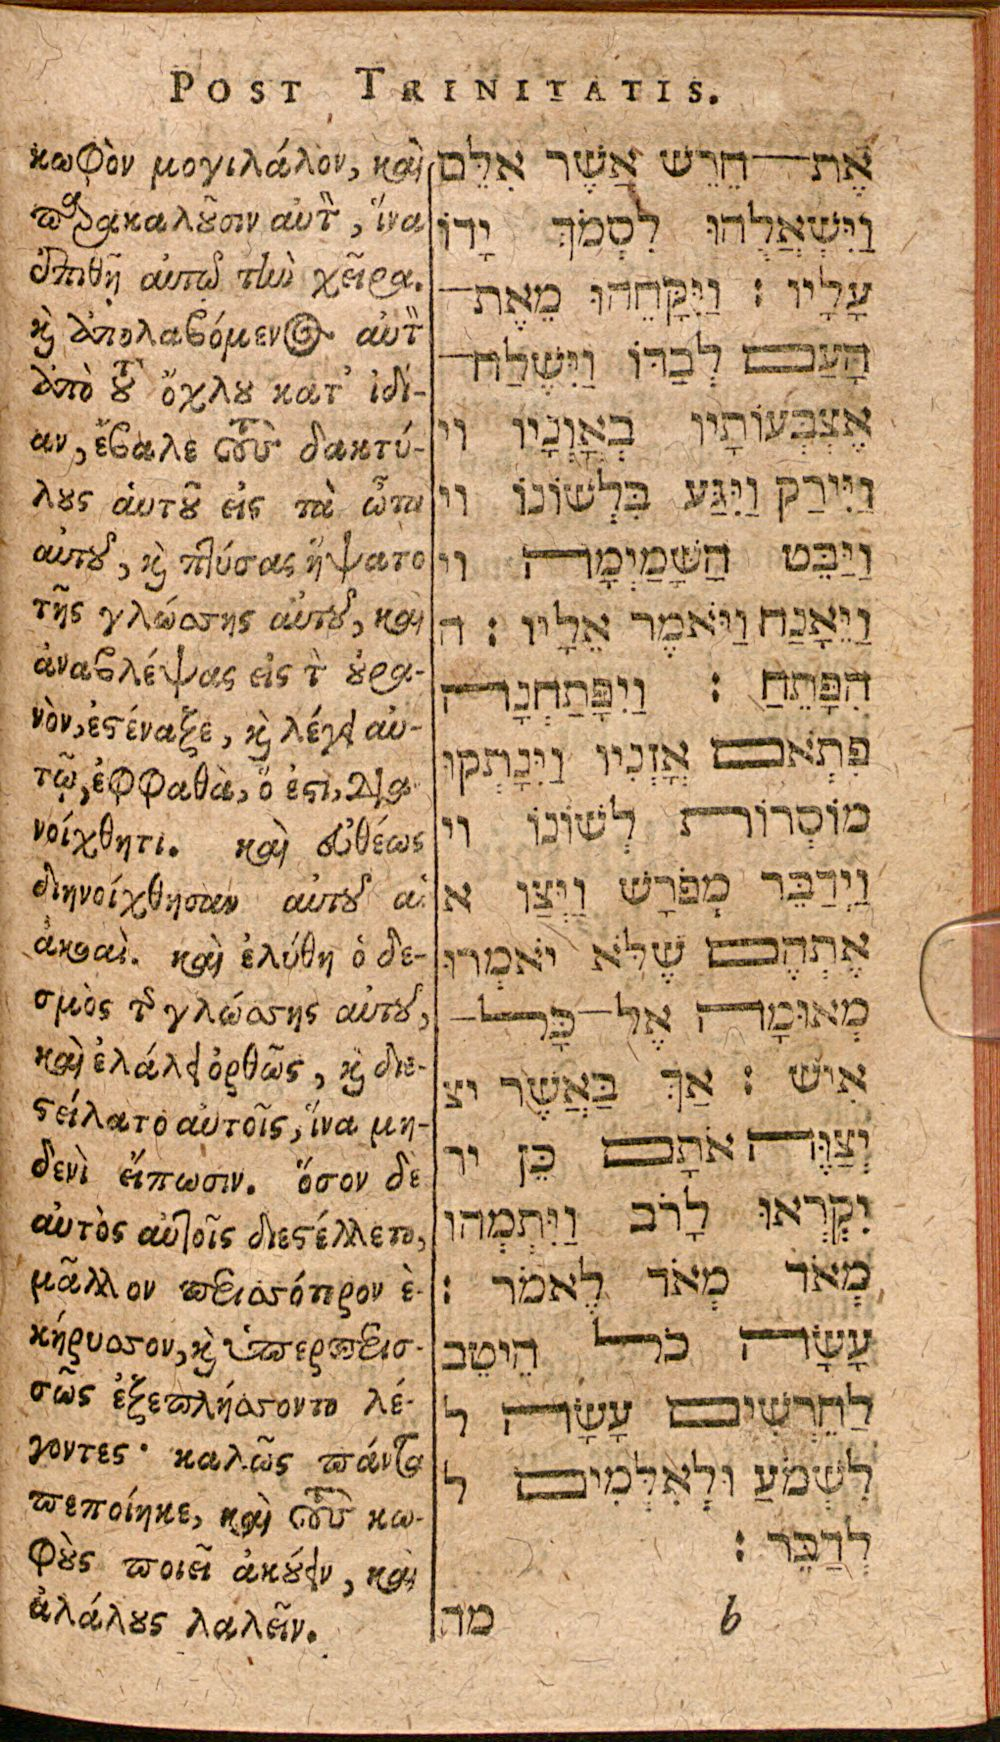 POST TRINITATIS.
κωφὸν μογιλάλον, καὶ
παρακαλοῦσιν αὐτὸν, ἵνα
ἐπιθῇ αὐτῷ τὴν χεῖρα.
καὶ ἀπολαβόμενος αὐτὸν
ἀπὸ τοῦ ὄχλου κατ' ἰδί-
αν, ἔβαλε τοὺς δακτύ-
λους αὑτοῦ εἰς τὰ ὦτα
αὐτοῦ, καὶ πτύσας ἥψατο
τῆς γλώσσης αὐτοῦ, καὶ
ἀναβλέψας εἰς τὸν οὐρα-
νὸν, ἐστέναξε, καὶ λέγει αὐ-
τῷ, ἐφφαθὰ, ὅ ἐστι, Δια-
νοίχθητι. καὶ εὐθέως
διηνοίχθησαν αὐτοῦ αἱ
ἀκοαὶ. καὶ ἐλύθη ὁ δε-
σμὸς τῆς γλώσσης αὐτοῦ,
καὶ ἐλάλει ὀρθῶς, καὶ διε-
στείλατο αὐτοῖς, ἵνα μη-
δενὶ εἴπωσιν. ὅσον δὲ
αὐτὸς αὐτοῖς διεστέλλετο,
μᾶλλον περισσότερον ἐ-
κήρυσσον, καὶ ὑπερπερισ-
σῶς ἐξεπλήσσοντο λέ-
γοντες· καλῶς πάντα
πεποίηκε, καὶ τοὺς κω-
φοὺς ποιεῖ ἀκούειν, καὶ
ἀλάλους λαλεῖν.
אֶת־חֵרֵשׁ אֲשֶׁר אִלֵּם
וַיִּשְׁאָלֻהוּ לִסְמֹךְ יָדוֹ
עָלָיו : וַיִּקָּחֵהוּ מֵאֶת־
הָעַם לְבַדּוֹ וַיִּשְׁלַח־
אֶצְבְּעוֹתָיו בְּאָזְנָיו וי
וַיִּירַק וַיִּגַּע בִּלְשׁוֹנוֹ וי
וַיַּבֵּט הַשָּׁמַיְמָה וי
וַיֵּאָנַח וַיֹּאמֶר אֵלָיו : ה
הִפָּתֵחַ : וַיִּפָּתַחְנָה
פִּתְאֹם אָזְנָיו וַיִּנָּתְקוּ
מוֹסְרוֹת לְשׁוֹנוֹ וי
וַיְדַבֵּר מְפֹרָשׁ וַיְצַו א
אֶתְהֶם שֶׁלֹּא יֹאמְרוּ
מְאוּמָה אֶל־כָּל־
אִישׁ : אַךְ בַּאֲשֶׁר יצ
יְצַוֶּה אֹתָם כֵּן יר
יִקְרְאוּ לָרֹב וַיִּתְמְהוּ
מְאֹד מְאֹד לֵאמֹר :
עָשָׂה כֹל הֵיטֵב
לַחֵרְשִׁים עָשָׂה ל
לִשְׁמֹעַ וּלְאִלְּמִים ל
לְדַבֵּר :
b מה